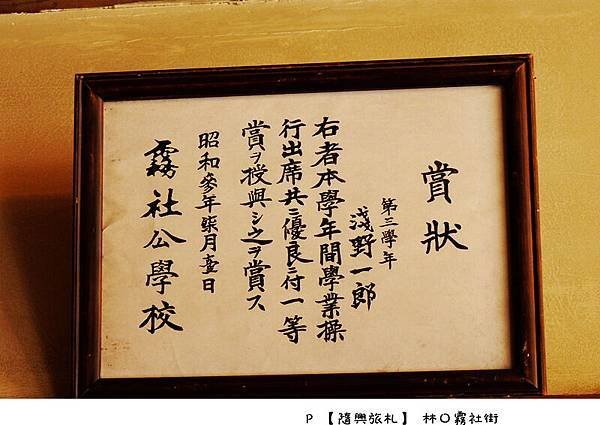 賞狀
第三學年
淺野一郎
右者本學年間學業操
行出席共ニ優良ニ付一等
賞ヲ授與シ之ヲ賞ス
昭和參年柒月壹日
霧社公學校
P 【隨興旅札】 林口霧社街